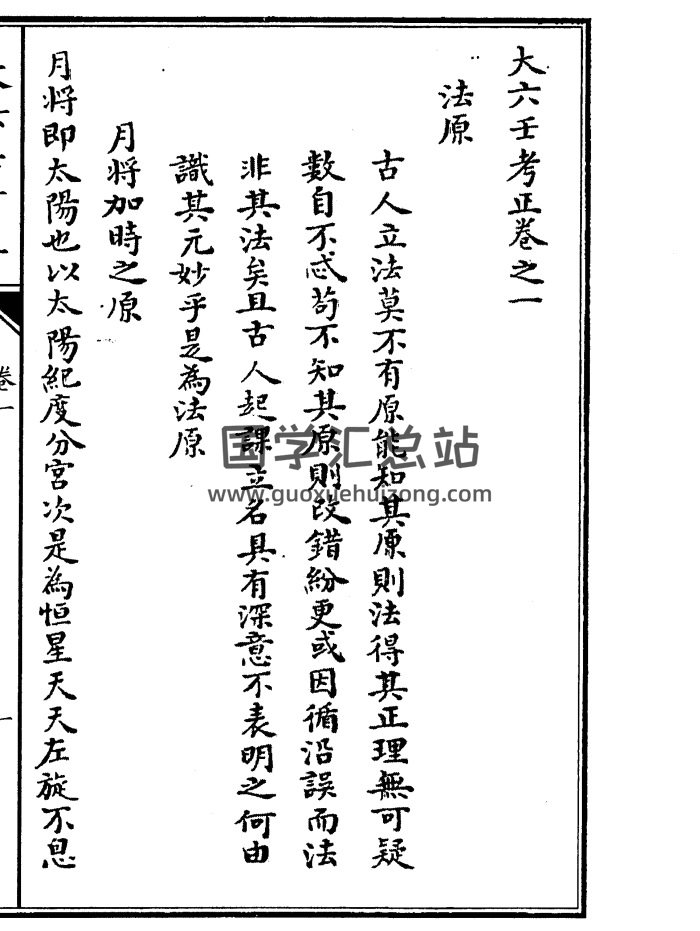 大六壬考正卷之一
法原
古人立法莫不有原能知其原則法得其正理無可疑
數自不忒苟不知其原則改錯紛更或因循沿誤而法
非其法矣且古人起課立名具有深意不表明之何由
識其元妙乎是為法原
月將加時之原
月将即太陽也以太陽紀度分宮次是為恒星天天左旋不息
卷一
一
国学汇总站
www.guoxuehuizong.com